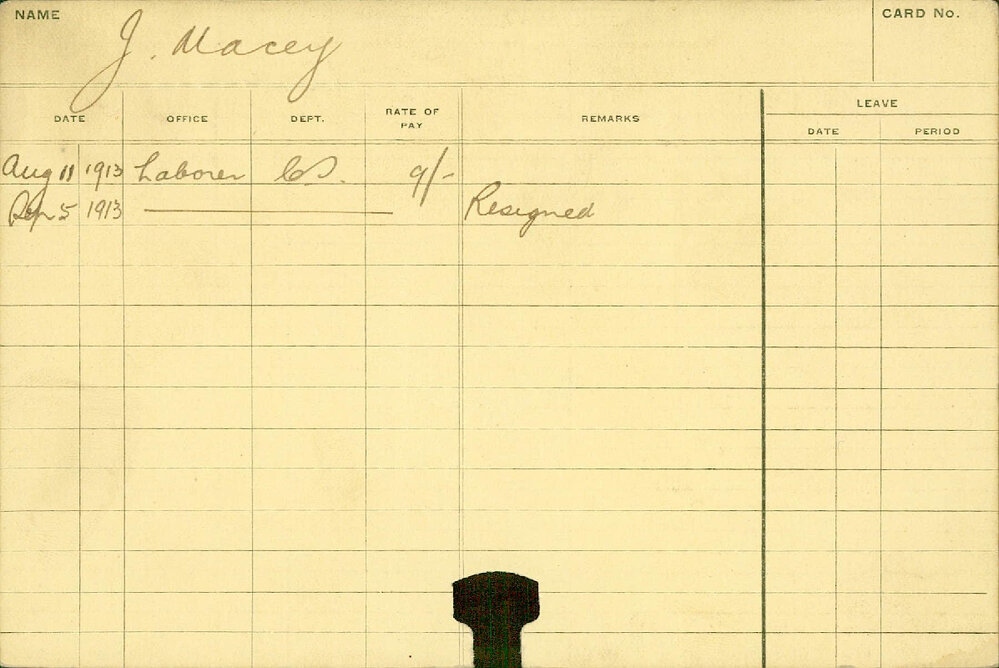 NAME J. Macey CARD No.
DATE OFFICE DEPT. RATE OF PAY REMARKS LEAVE
DATE PERIOD
Aug 11 1913 Laborer 9/-
Sep 5 1913 Resigned